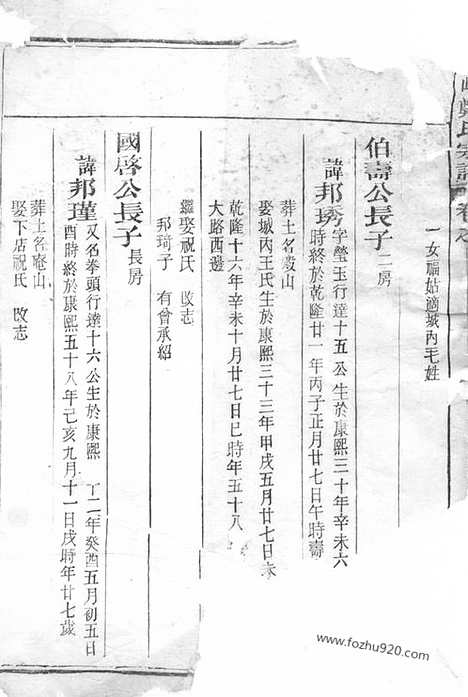 氏宗譜 卷之
一女福姑適城內毛姓
伯壽公長子 二房
諱邦琇字瑩玉行達十五公生於康熙三十年辛未六
時終於乾隆廿一年丙子正月廿七日午時壽
葬土名蛟山
娶城內王氏生於康熙三十三年甲戌五月廿七日未
乾隆十六年辛未十月廿七日巳時年五十八
大路西邊
繼娶祝氏 改志
邦琦子 有曾承紹
國啓公長子 長房
諱邦瑾又名拳頭行達十六公生於康熙 十二年癸酉五月初五日
酉時終於康熙五十八年己亥九月十一日戌時年廿七歲
葬土名庵山
娶下店祝氏 改志
www.fozhu920.com